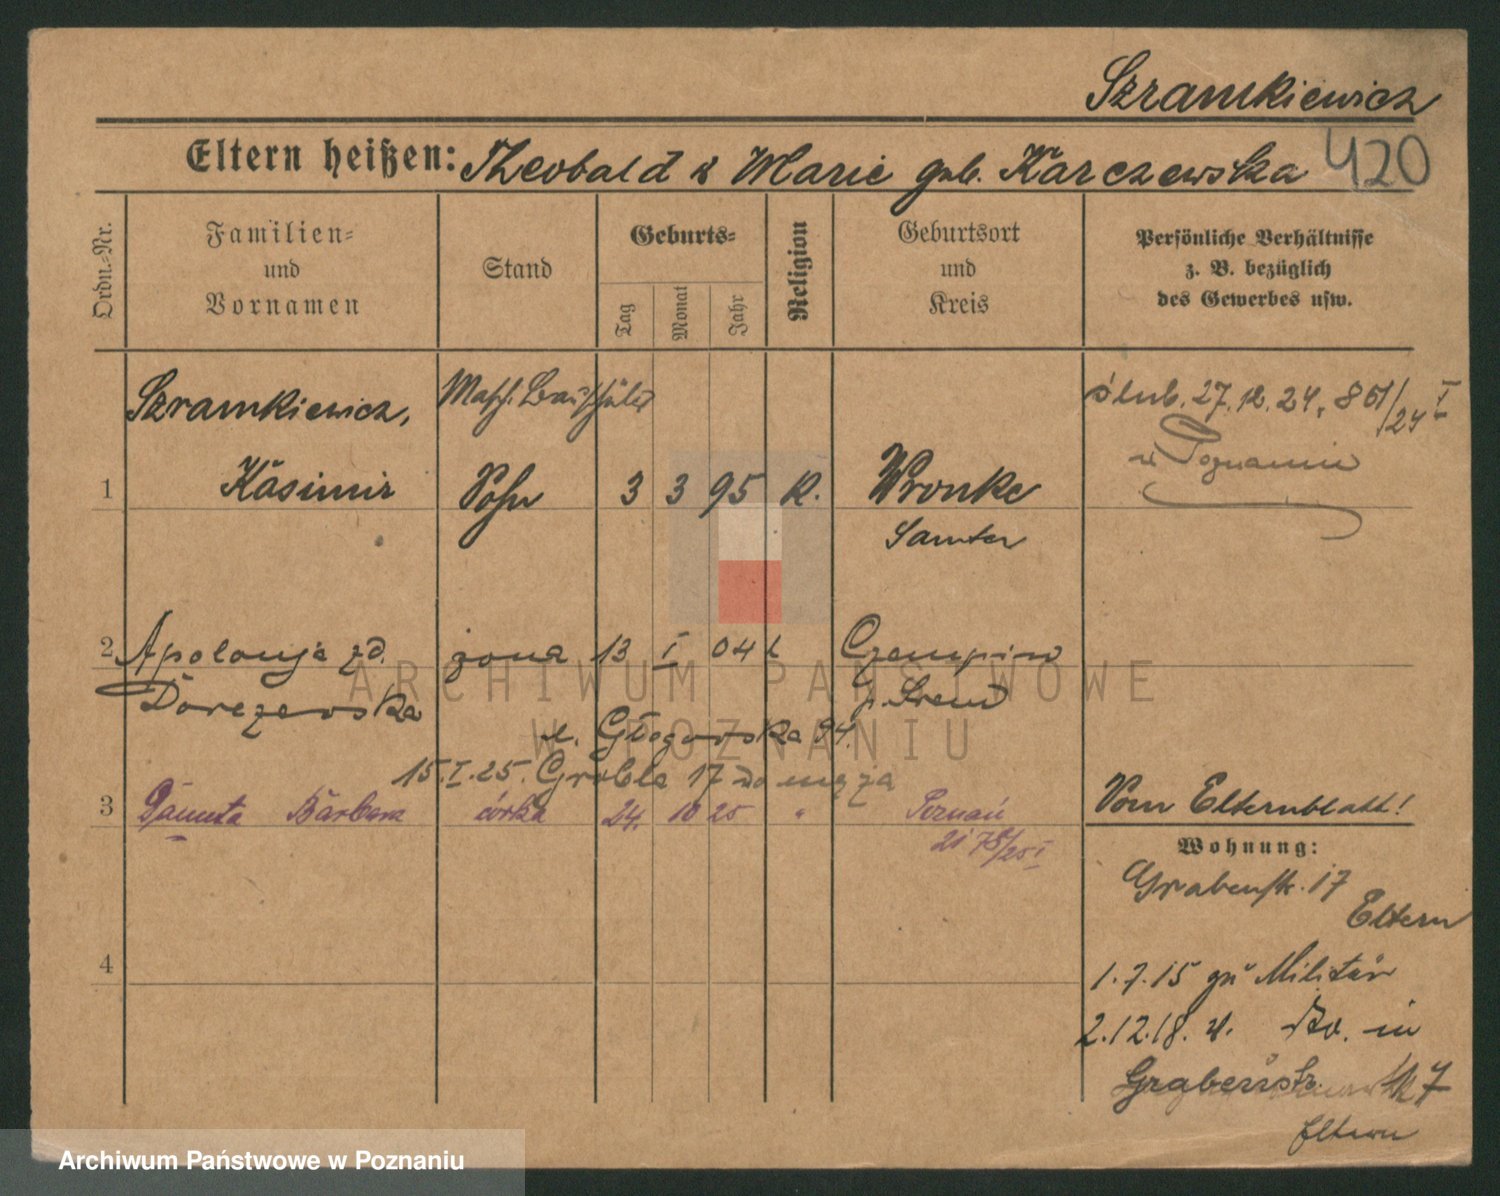 Szramkiewicz
Eltern heißen: Theobald & Marie geb. Karczewska 420
Ordn.-Nr.
Familien-
und
Vornamen
Stand
Geburts-
Tag
Monat
Jahr
Religion
Geburtsort
und
Kreis
Persönliche Verhältnisse
z. B. bezüglich
des Gewerbes usw.
Szramkiewicz, Masch. Bauschüler ślub. 27.12.24. 861/24 I
w Poznaniu
1 Kasimir Sohn 3 3 95 K. Wronke
Samter
2 Apolonja zd. żona 13 I 04 k Czempiń
Dorczewska p. Śrem
z. Głogowska 94.
15.I.25. Grobla 17 do męża
3 Danuta Barbara córka 24. 10 25 " Poznań
I
Vom Elternblatt!
Wohnung:
Grabenstr. 17
Eltern
4
1.7.15 zu Militär
2.12.18. v. do. in
Grabenstr. 17
Eltern
ARCHIWUM PAŃSTWOWE
W POZNANIU
Archiwum Państwowe w Poznaniu